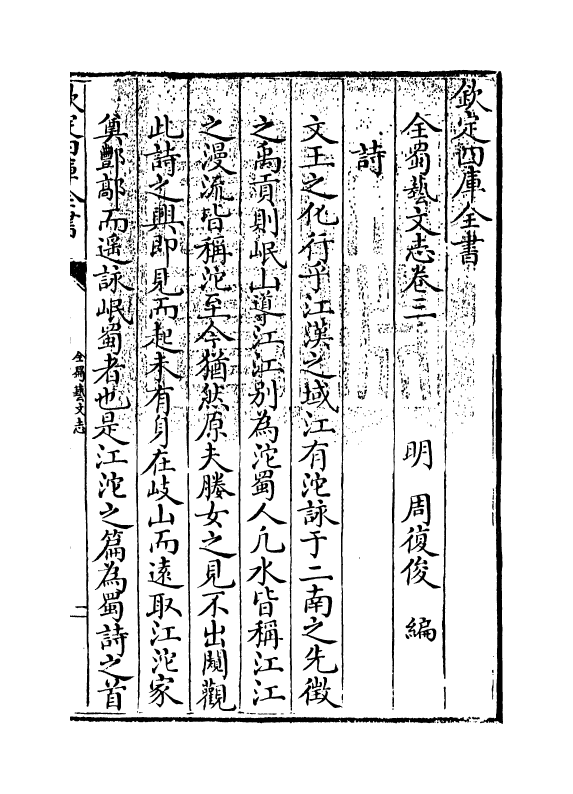 欽定四庫全書
全蜀藝文志卷三
明　周復俊　編
詩
文王之化行乎江漢之域江有沱詠于二南之先徵
之禹貢則岷山導江江别為沱蜀人凢水皆稱江江
之漫流皆稱沱至今猶然原夫媵女之見不出閫觀
此詩之興即見而起未有身在岐山而逺取江沱家
奠酆鄗而遥詠岷蜀者也是江沱之篇為蜀詩之首
欽定四庫全書
全蜀藝文志